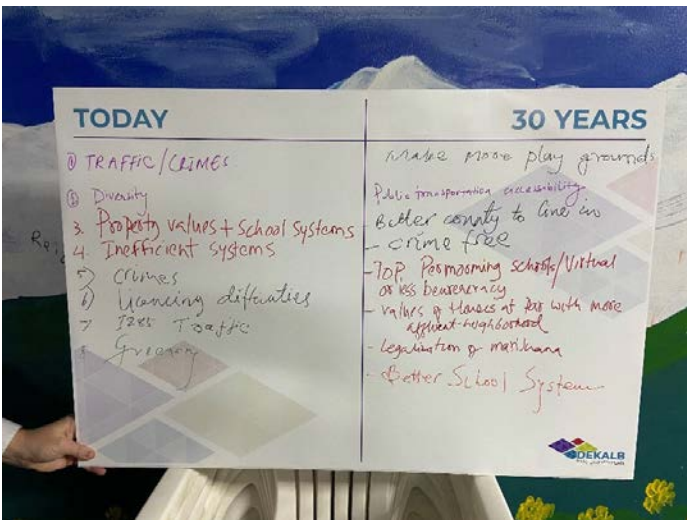 TODAY
① TRAFFIC/CRIMES
② Diversity
3. Property values + School systems
4. Inefficient systems
5) Crimes
6) Licencing difficulties
7 I285 Traffic
30 YEARS
Make more play grounds
Public transportation accessibility
Better county to live in
- crime free
- TOP Permorming schools/Virtual
or less beurencracy
- values of Houses at par with more
affluent neighborhood
- Legalization of marijuana
- Better School System
DEKALB